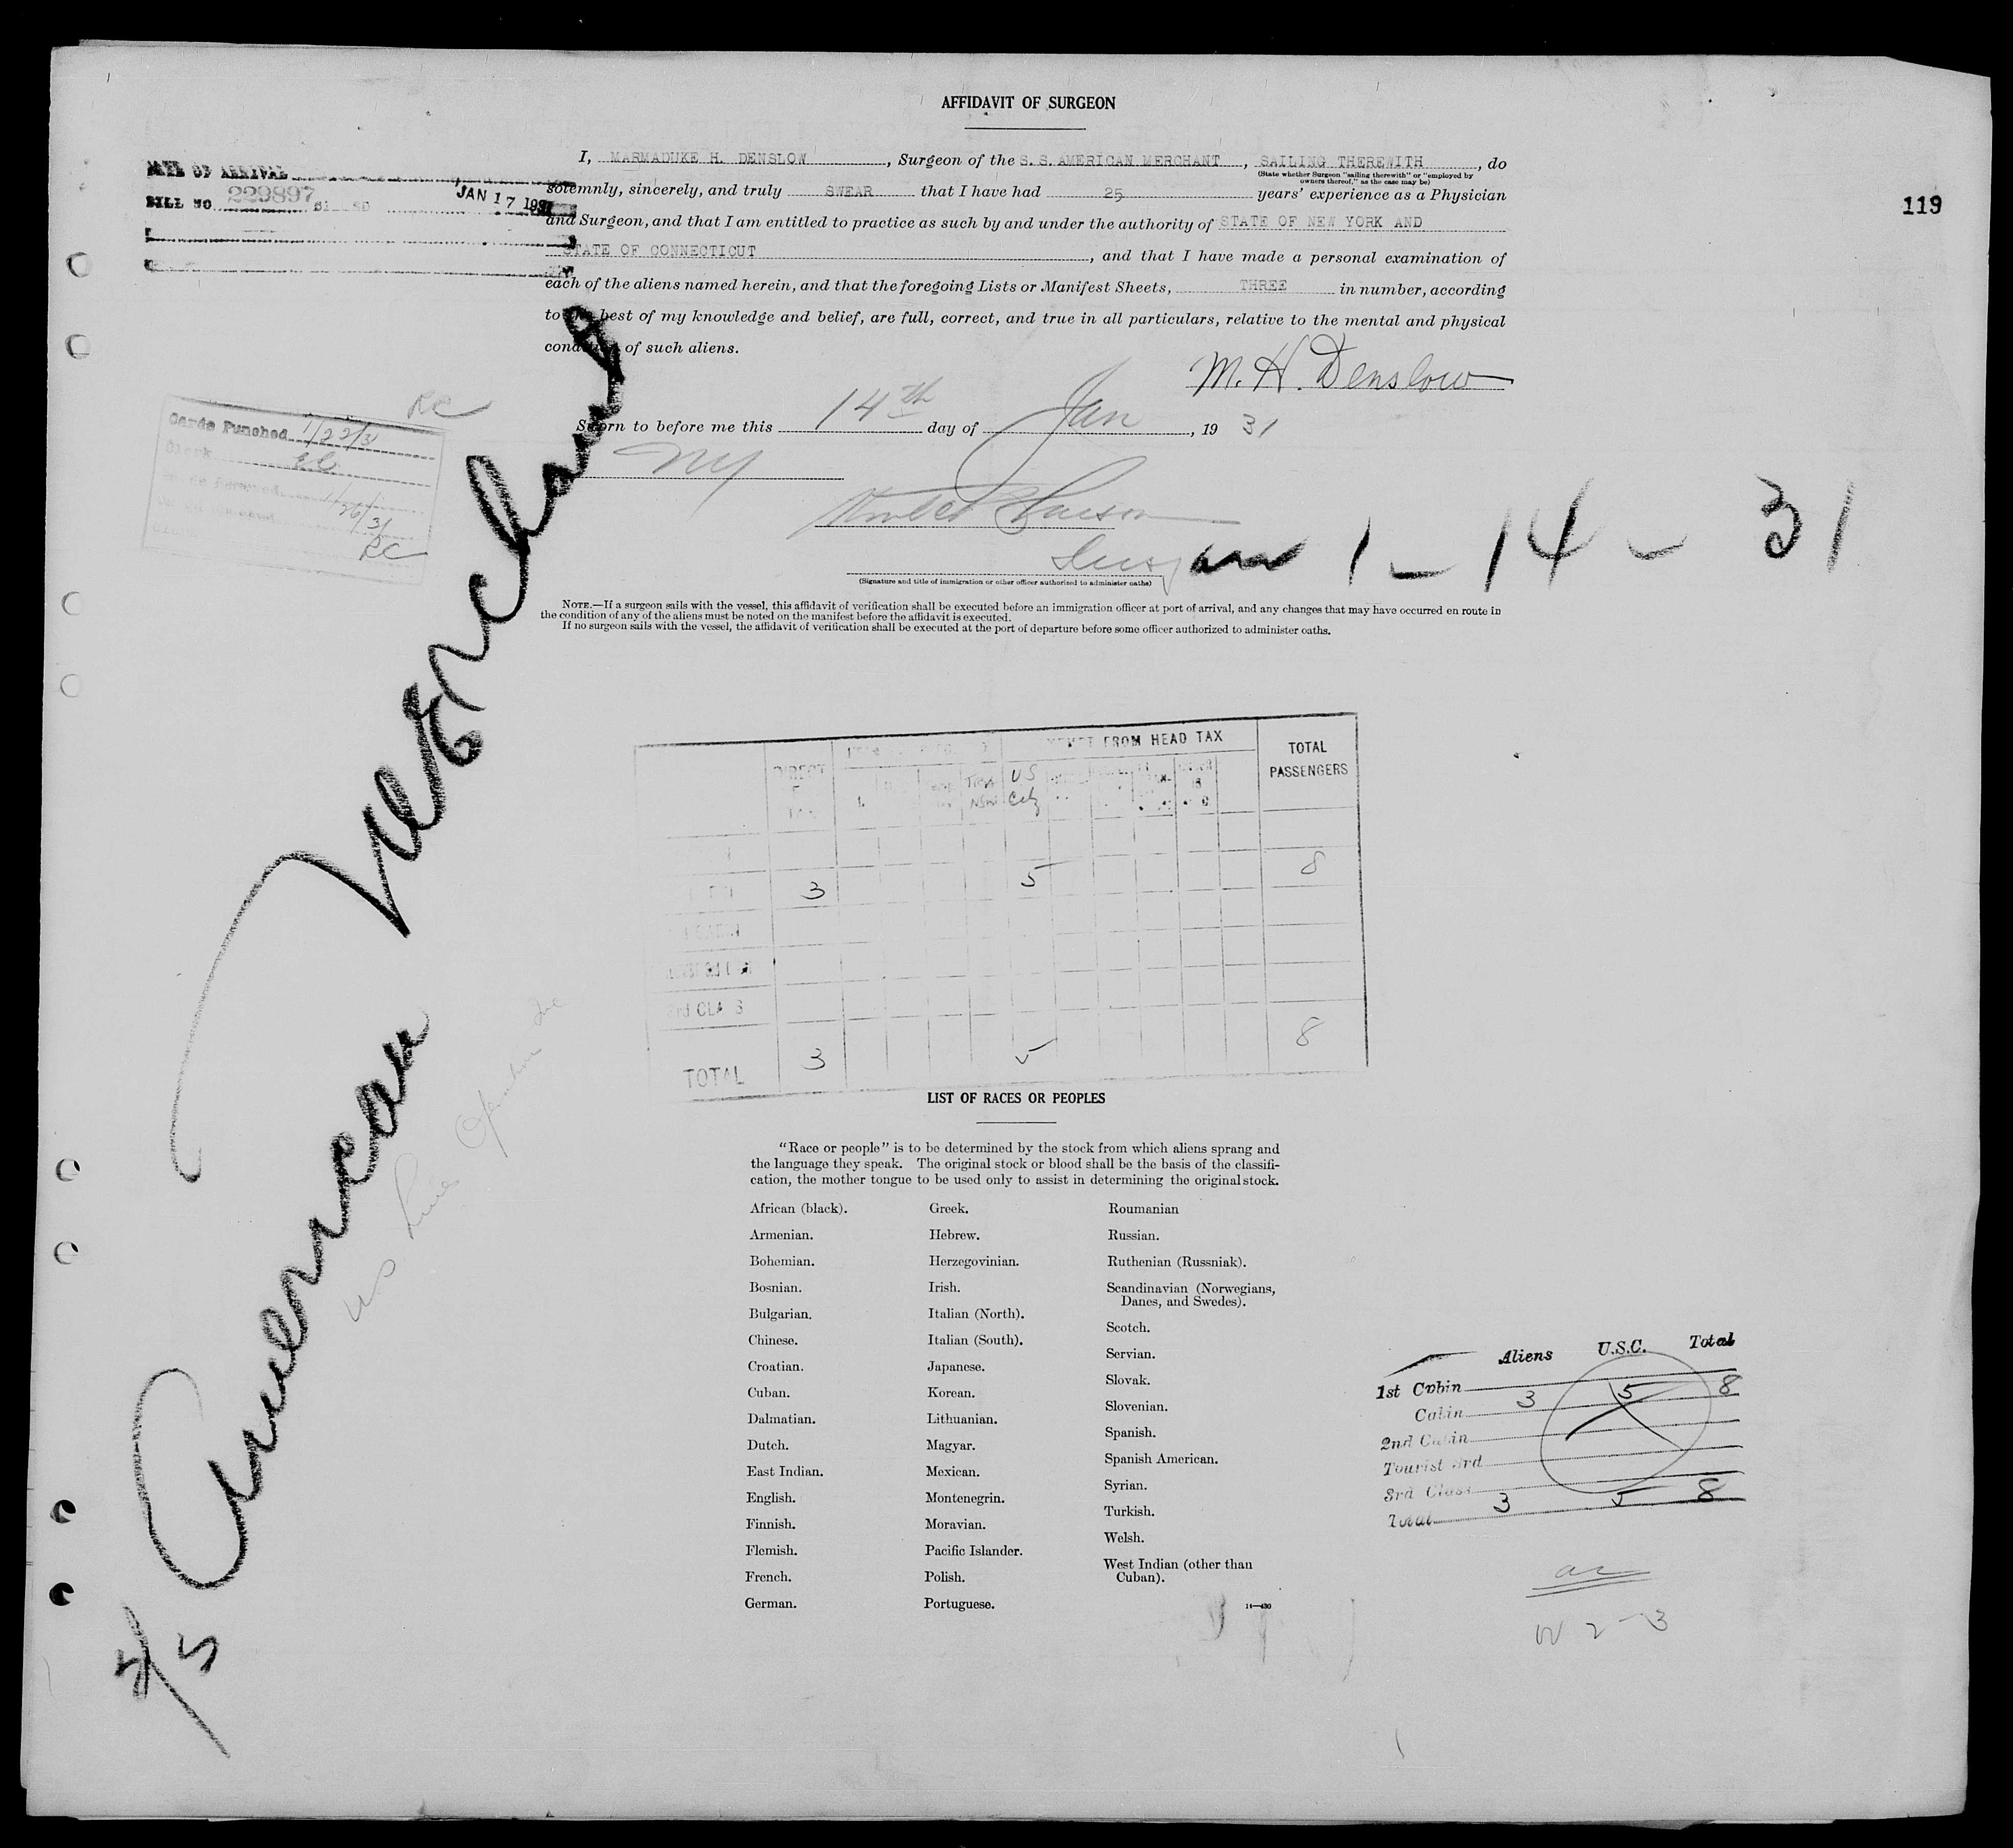 AFFIDAVIT OF SURGEON
I, MARMADUKE H. DENSLOW, Surgeon of the S.S. AMERICAN MERCHANT, SAILING THEREWITH, do
(State whether Surgeon "sailing therewith" or "employed by
owners thereof," as the case may be)
solemnly, sincerely, and truly SWEAR that I have had 25 years' experience as a Physician
and Surgeon, and that I am entitled to practice as such by and under the authority of STATE OF NEW YORK AND
STATE OF CONNECTICUT, and that I have made a personal examination of
each of the aliens named herein, and that the foregoing Lists or Manifest Sheets, THREE in number, according
to the best of my knowledge and belief, are full, correct, and true in all particulars, relative to the mental and physical
condition of such aliens.
M. H. Denslow
Sworn to before me this 14th day of Jan, 19 31
NY
(Signature and title of immigration or other officer authorized to administer oaths)
NOTE.—If a surgeon sails with the vessel, this affidavit of verification shall be executed before an immigration officer at port of arrival, and any changes that may have occurred en route in
the condition of any of the aliens must be noted on the manifest before the affidavit is executed.
If no surgeon sails with the vessel, the affidavit of verification shall be executed at the port of departure before some officer authorized to administer oaths.
DATE OF ARRIVAL
BILL NO 229897
JAN 17 193
119
RC
Cards Punched 1/22/31
Clerk
1/26/31
RC
1-14-31
S/S American Merchant
US Lines
DIRECT
EXEMPT FROM HEAD TAX
TOTAL
PASSENGERS
US
3 5 8
3rd CLASS
TOTAL 3 5 8
LIST OF RACES OR PEOPLES
"Race or people" is to be determined by the stock from which aliens sprang and
the language they speak. The original stock or blood shall be the basis of the classifi-
cation, the mother tongue to be used only to assist in determining the original stock.
African (black).
Armenian.
Bohemian.
Bosnian.
Bulgarian.
Chinese.
Croatian.
Cuban.
Dalmatian.
Dutch.
East Indian.
English.
Finnish.
Flemish.
French.
German.
Greek.
Hebrew.
Herzegovinian.
Irish.
Italian (North).
Italian (South).
Japanese.
Korean.
Lithuanian.
Magyar.
Mexican.
Montenegrin.
Moravian.
Pacific Islander.
Polish.
Portuguese.
Roumanian
Russian.
Ruthenian (Russniak).
Scandinavian (Norwegians,
Danes, and Swedes).
Scotch.
Servian.
Slovak.
Slovenian.
Spanish.
Spanish American.
Syrian.
Turkish.
Welsh.
West Indian (other than
Cuban).
14—430
Aliens U.S.C. Total
1st Cabin 3 5 8
Cabin
2nd Cabin
Tourist 3rd
3rd Class
Total 3 5 8
W 2-3